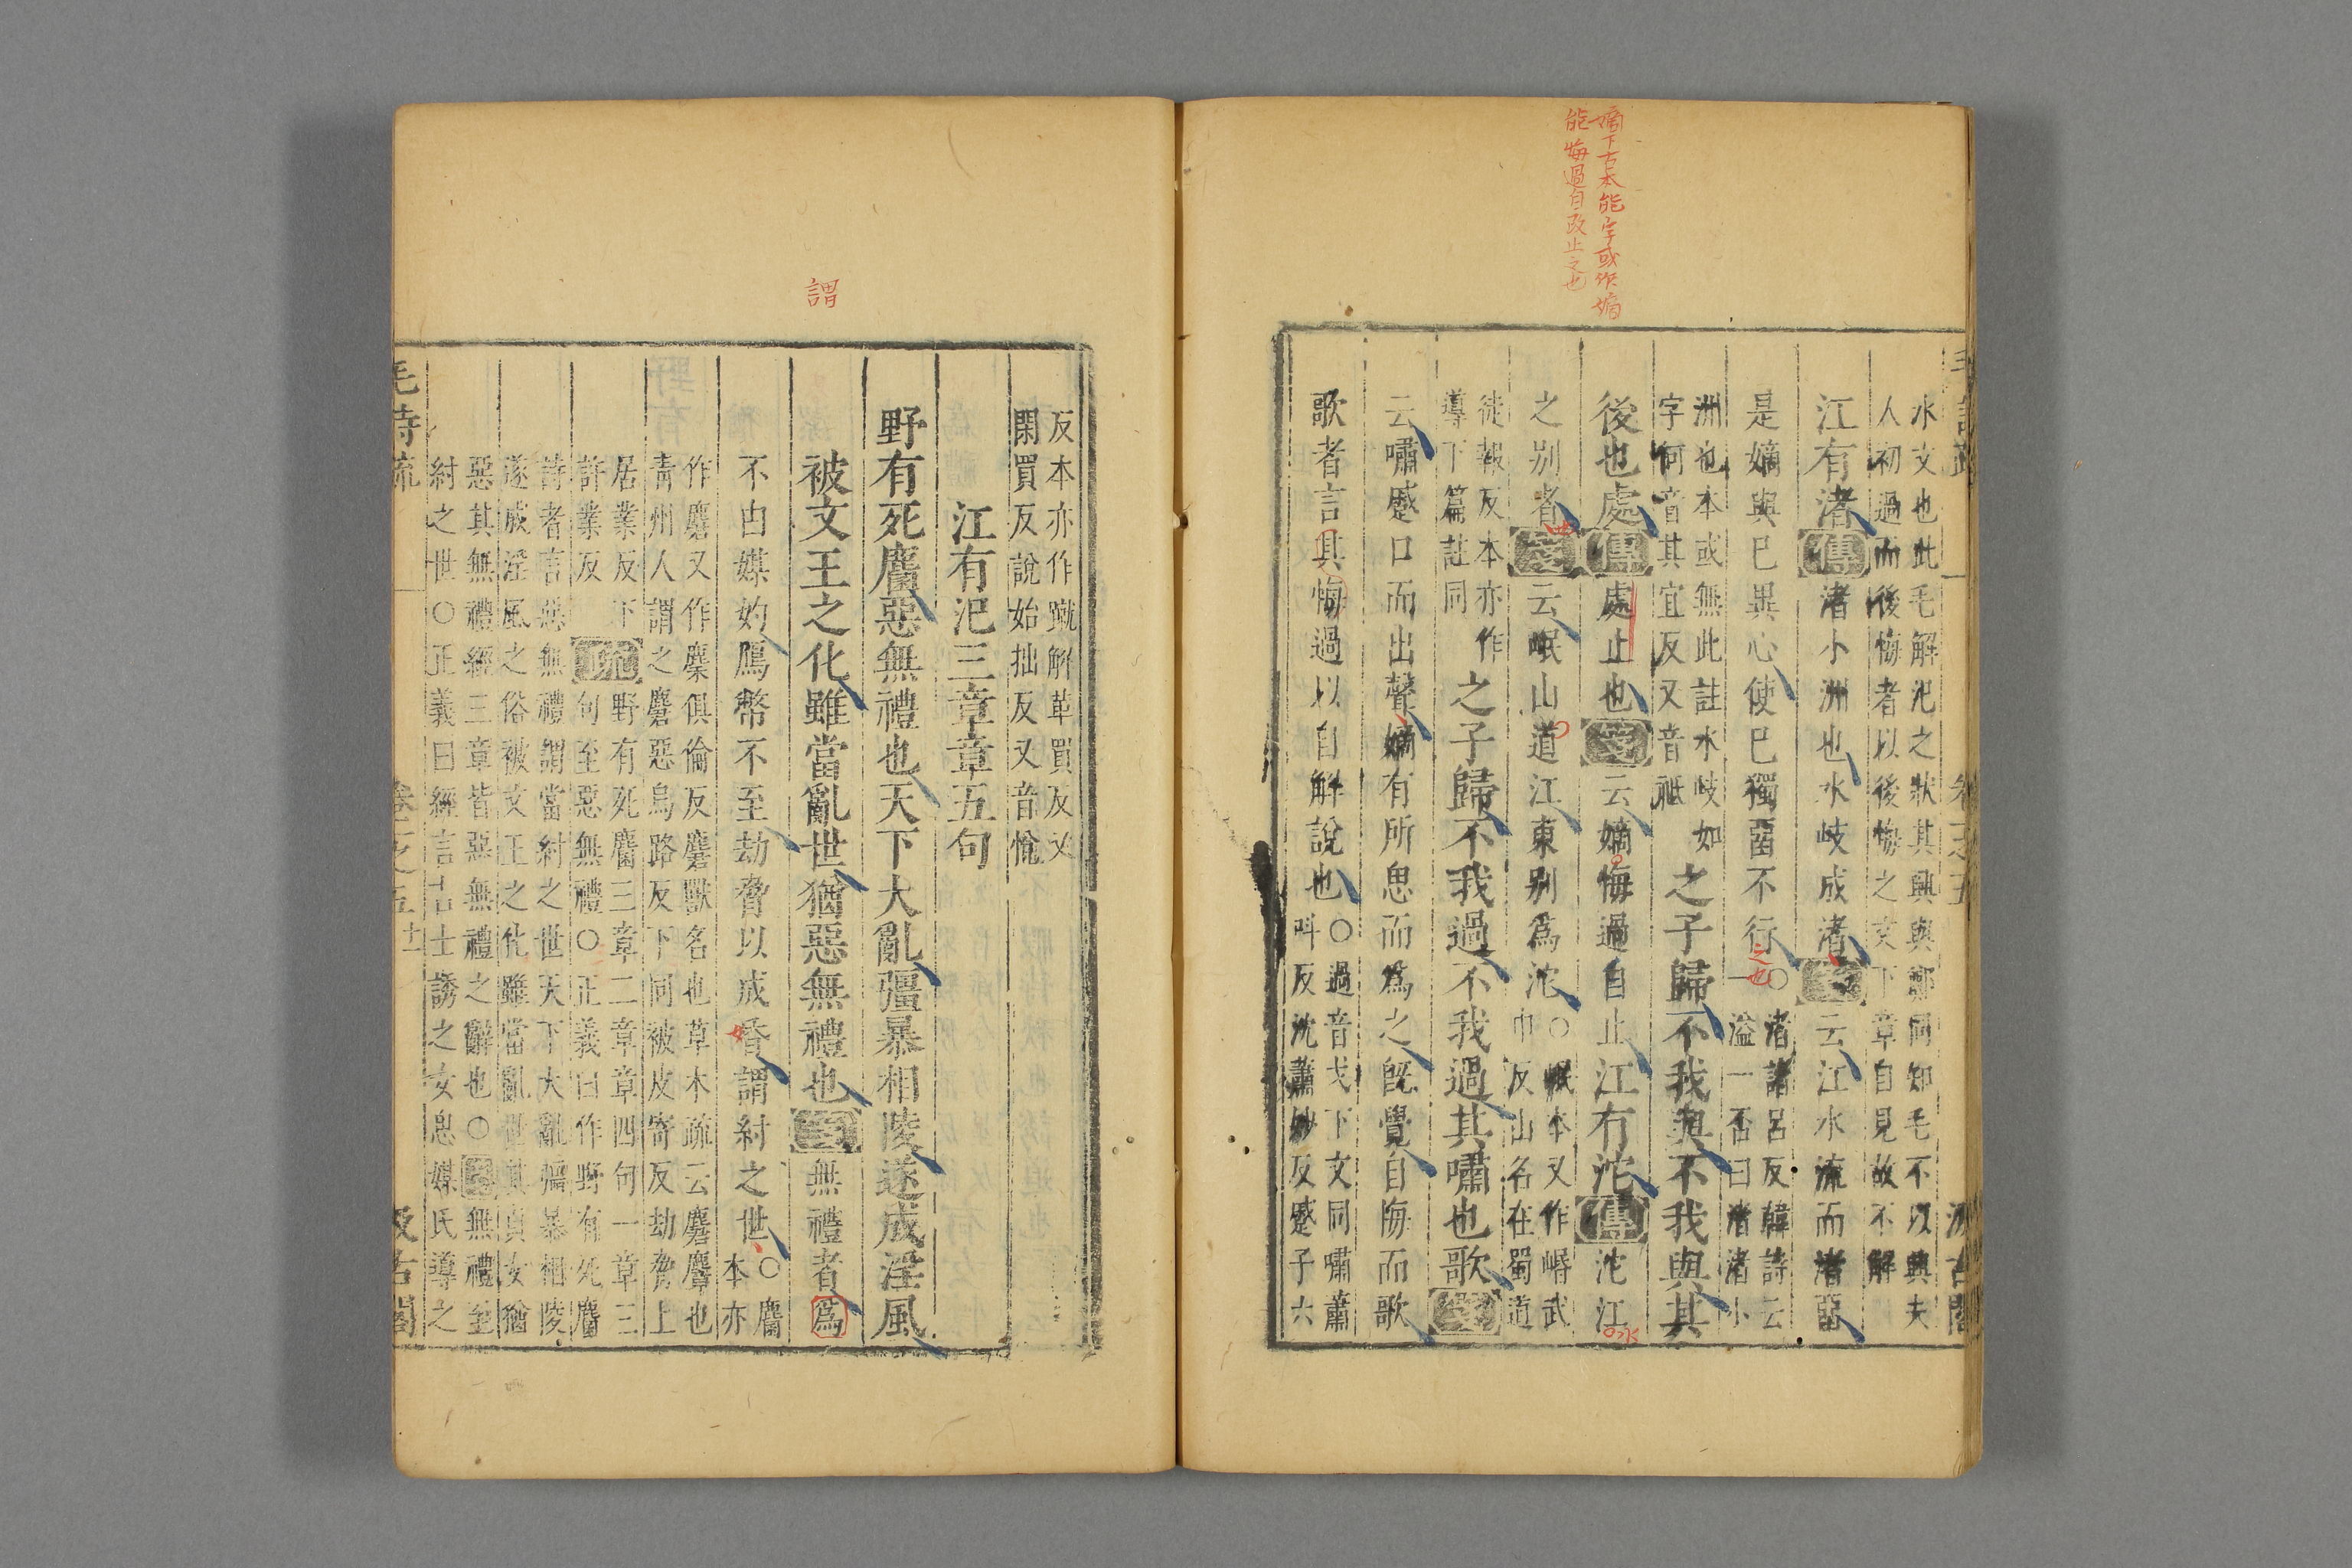 嫡下古本能字或作嫡
能悔過自改止之也
水文也此毛解汜之狀其興與鄭同知毛不以興夫
人初過而後悔者以後悔之文下章自見故不解
江有渚傳渚小洲也水岐成渚箋云江水流而渚畱
是嫡與已異心使已獨畱不行之也○渚諸呂反韓詩云
一溢一否曰渚渚小
洲也本或無此註水岐如
字何音其宜反又音祇
之子歸不我與不我與其
後也處傳處止也箋云嫡悔過自止江有沱傳沱江水
之别者也箋云岷山道江東别爲沱○岷本又作㟭武
巾反山名在蜀道
徒報反本亦作
導下篇註同
之子歸不我過不我過其嘯也歌箋
云嘯蹙口而出聲嫡有所思而爲之旣覺自悔而歌
歌者言其悔過以自解說也○過音戈下文同嘯蕭
叫反沈蕭妙反蹙子六
毛詩疏
卷一之五
汲古閣
反本亦作蹴解革買反又
閑買反說始拙反又音悅
江有汜三章章五句
野有死麕惡無禮也天下大亂彊暴相陵遂成淫風
被文王之化雖當亂世猶惡無禮也箋無禮者爲
謂
不由媒妁鴈幣不至劫脅以成昏謂紂之世○麕
本亦
作麏又作麇俱倫反麏獸名也草木疏云麏麞也
靑州人謂之麏惡烏路反下同被皮寄反劫脅上
居業反下
許業反
疏野有死麕三章二章章四句一章三
句至惡無禮○正義曰作野有死麕
詩者言惡無禮謂當紂之世天下大亂彊暴相陵
遂成淫風之俗被文王之化雖當亂世其貞女猶
惡其無禮經三章皆惡無禮之辭也○箋無禮至
紂之世○正義曰經言吉士誘之女思媒氏導之
毛詩疏
卷一之五
十二
汲古閣